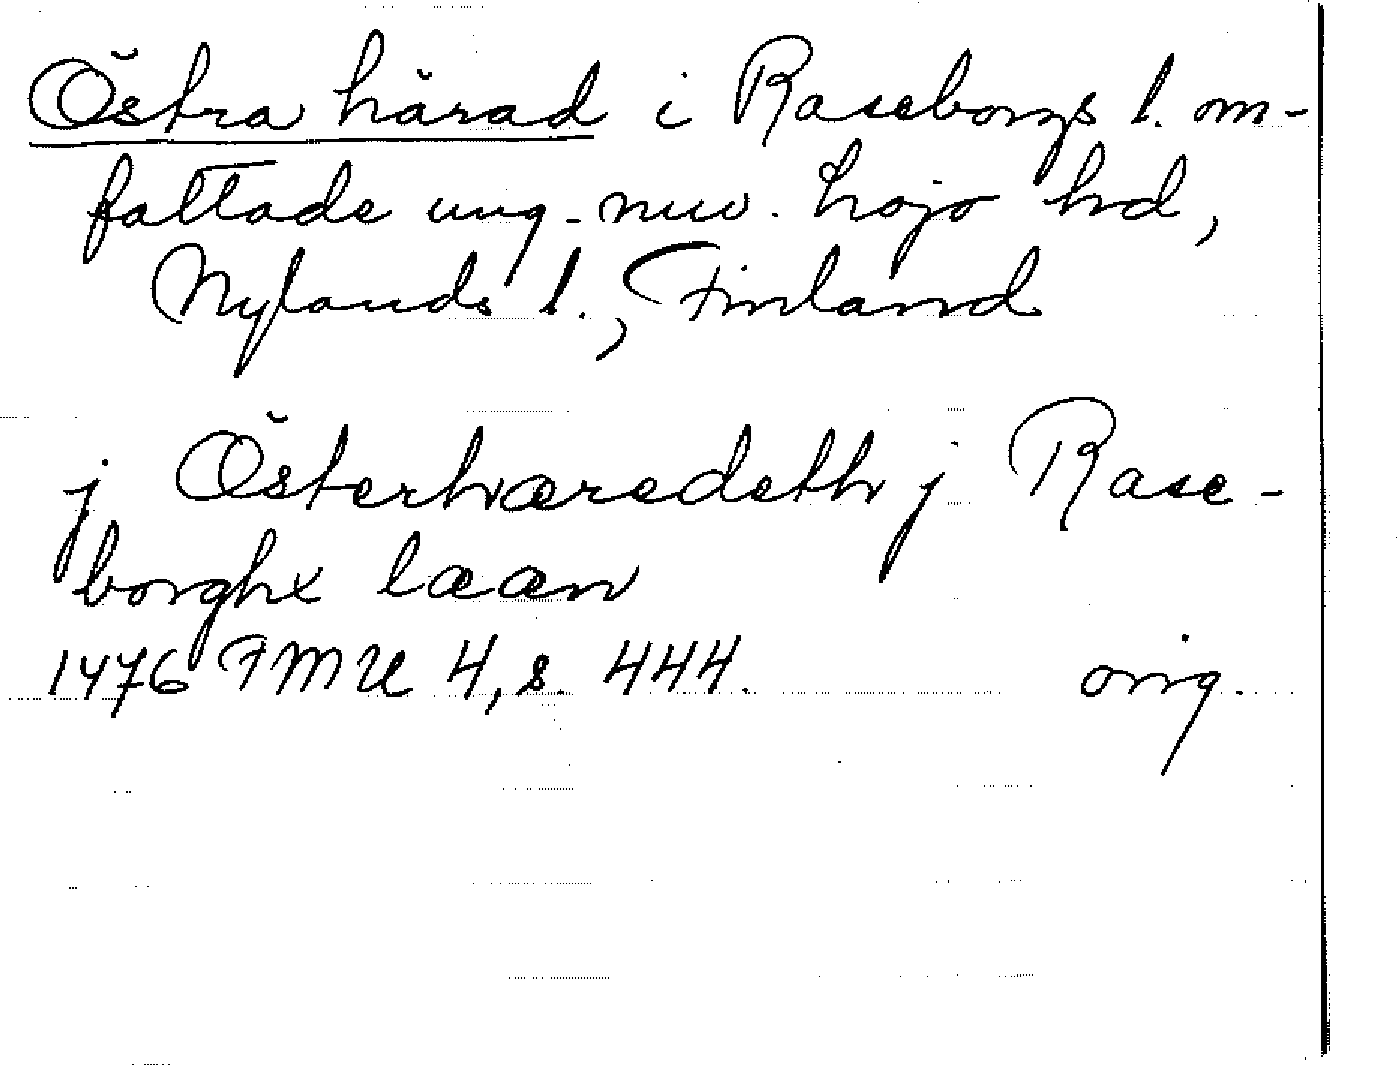 Östra härad i Raseborgs l. om-
fattade ung. nuv. Lojo hd,
Nylands l., Finland
j Österhæredeth j Rase-
borghx lææn
1476 FMU 4, s. 444. orig.